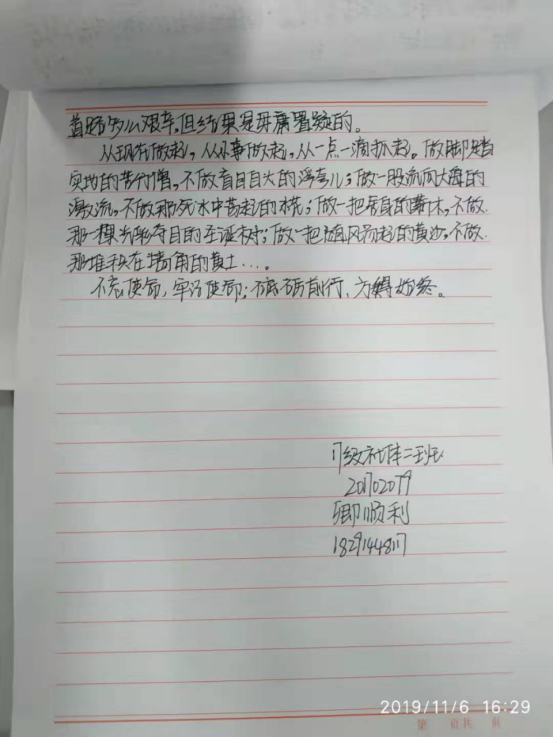 道路多么艰辛,但结果是毋庸置疑的。
从现在做起,从小事做起,从一点一滴抓起。做脚踏
实地的苦行僧,不做盲目自大的浮夸儿;做一股流向大海的
激流,不做那死水中荡起的水花;做一把居身的薪木,不做
那一棵光彩夺目的圣诞树;做一把随风扬起的黄沙,不做
那堆积在墙角的黄土…。
不忘使命,牢记使命;砥砺前行,方得始终。
17级社体二班
201702079
卿顺利
18291448117
2019/11/6 16:29
第 页共 页